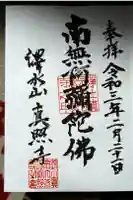 奉拝 令和三年二月二十日
南無阿彌陀佛
水山 真照寺